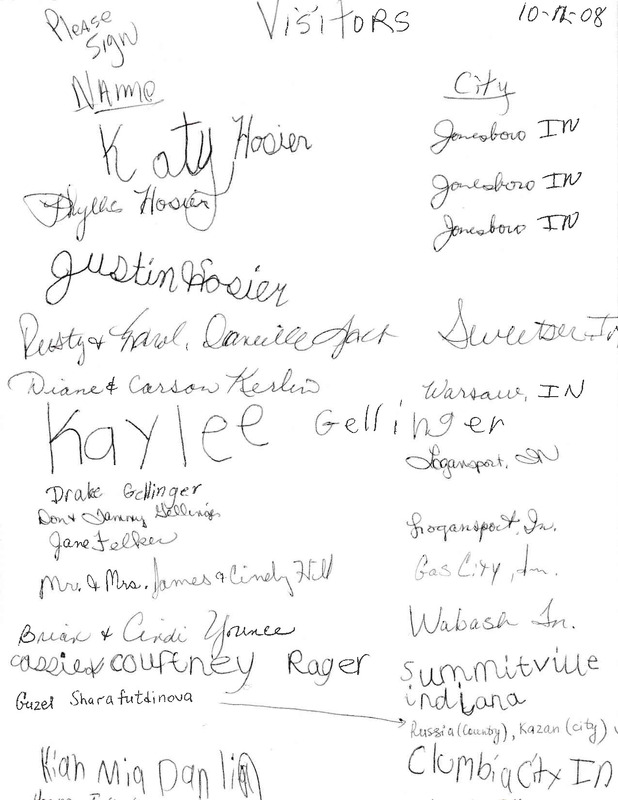 Please Sign
Visitors
10-12-08
Name
City
Katy Hosier Jonesboro IN
Phyllis Hosier Jonesboro IN
Jonesboro IN
Justin Hosier
Rusty & Karol, Danielle Jack Sweetser In
Diane & Carson Kerlin Warsaw, IN
Kaylee Gellinger
Logansport, IN
Drake Gellinger
Don & Tammy Gellinger Logansport, In.
Jane Felker Gas City, In.
Mr. & Mrs. James & Cindy Hill
Wabash In.
Brian & Cindi Younce
Cassie & Courtney Rager Summitville
indiana
Guzel Sharafutdinova
Russia (county), Kazan (city)
Kian Mia Dan lin Clumbia City IN